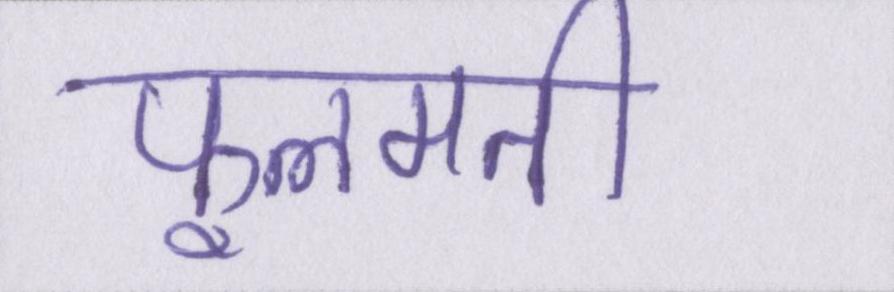 फूलमती